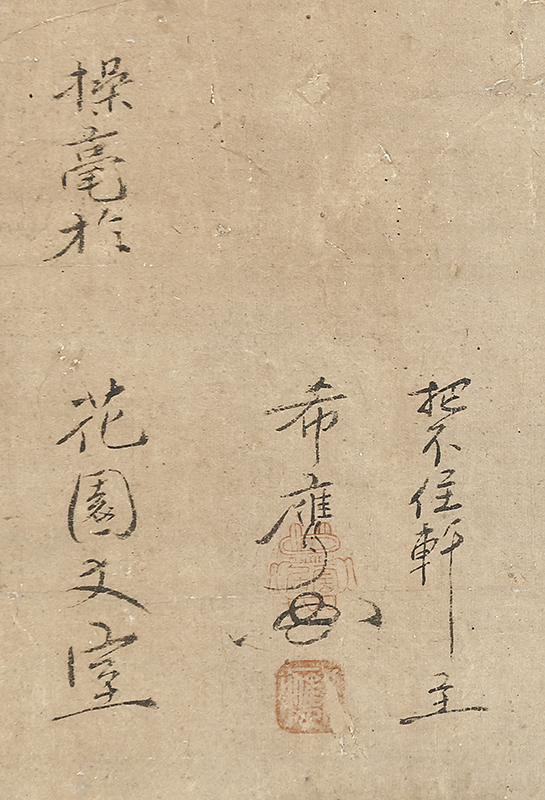 把不住軒主
希膺
操毫於
花園丈室